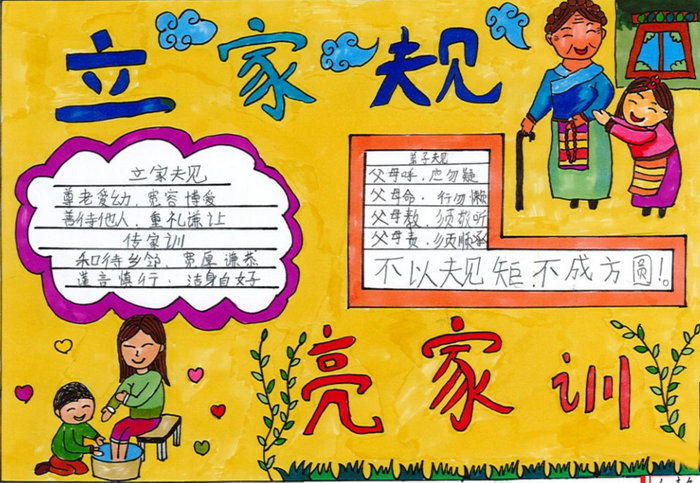 立家规
立家规
尊老爱幼、宽容博爱
善待他人、重礼谦让
传家训
和待乡邻、宽厚谦恭
谨言慎行、洁身自好
弟子规
父母呼，应勿
父母命，行勿懒
父母教，须敬听
父母责，须顺承
不以规矩，不成方圆！。
亮家训